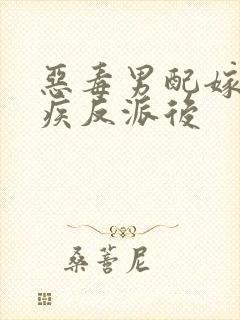 惡毒男配嫁
疾反派後
桑蕾尼